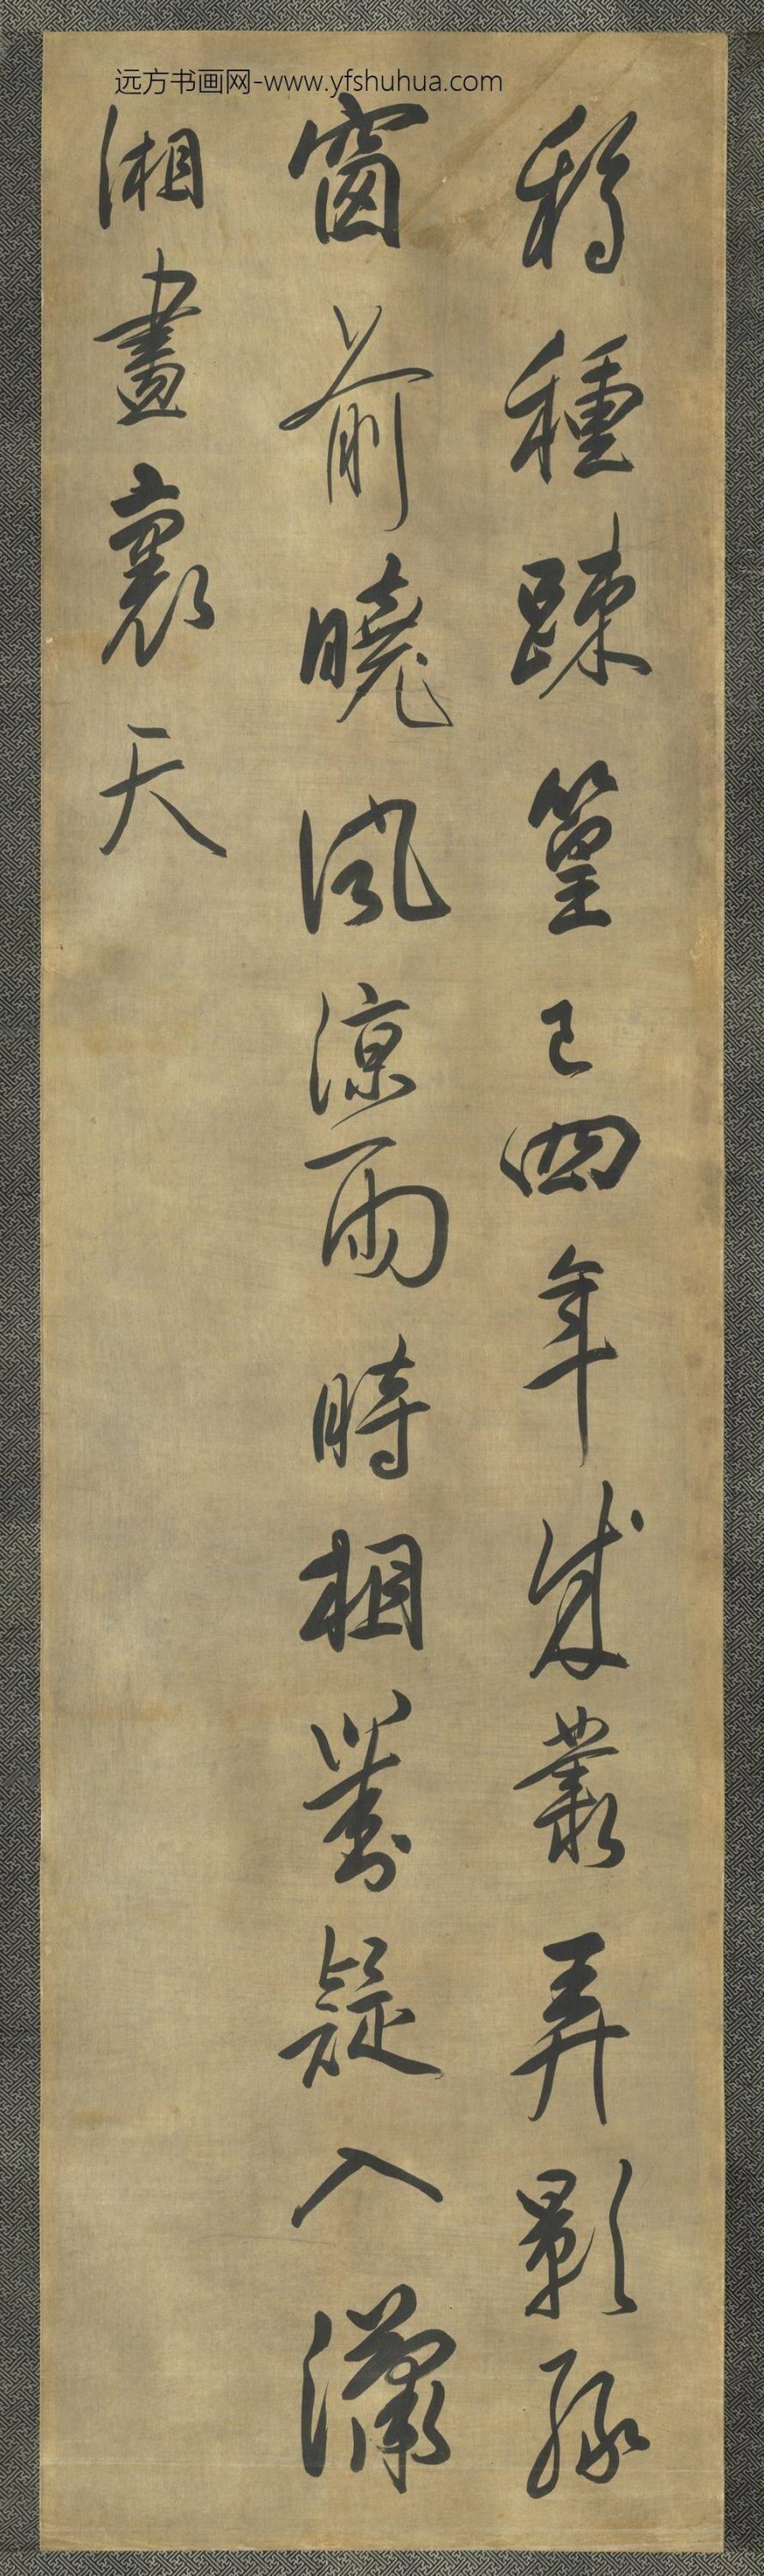 远方书画网-www.yfshuhua.com
移種疎篁已四年成叢弄影綠
窗前曉風涼雨時相對疑入瀟
湘畫裏天